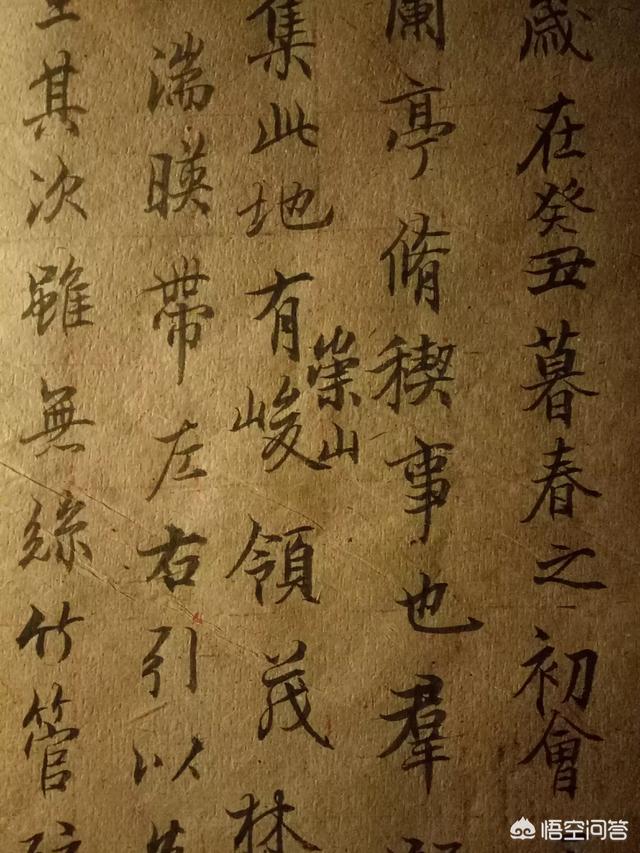 歲在癸丑暮春之初會
蘭亭脩稧事也羣
集此地有崇山峻領茂林
湍暎帶左右引以
其次雖無絲竹管
悟空问答